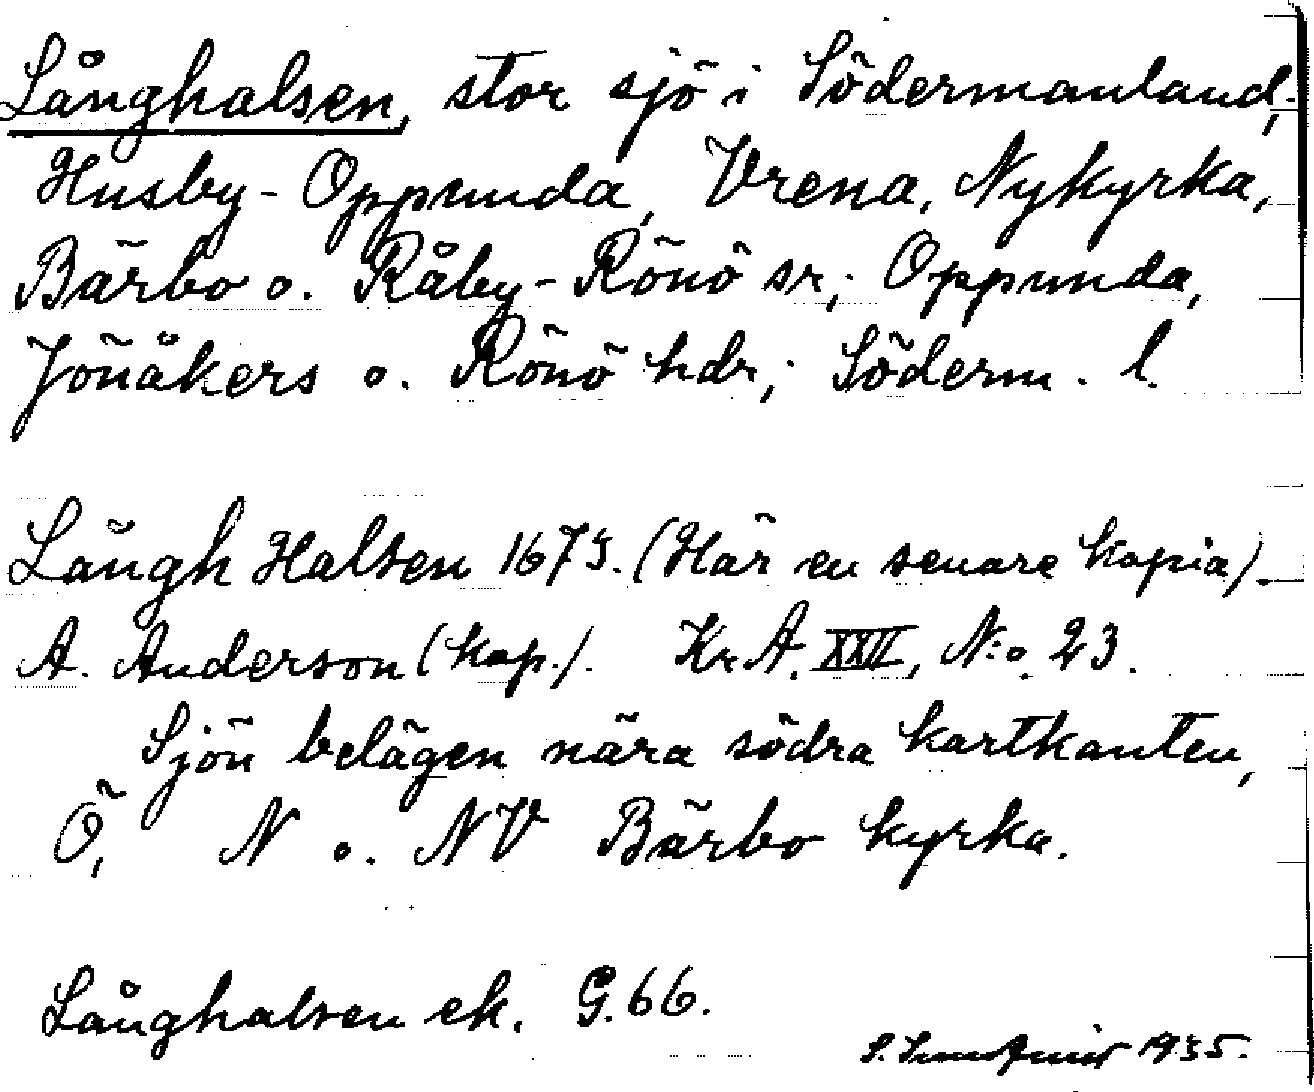 Långhalsen, stor sjö i Södermanland,
Husby-Oppunda, Vrena, Nykyrka,
Bärbo o. Råby-Rönö sr; Oppunda,
Jönåkers o. Rönö hdr; Söderm. l.
Långh Halsen 1673. (Här en senare kopia).
A. Anderson (kop.). Kr.A. XXII, N:o. 23.
Sjön belägen nära södra kartkanten,
Ö, N o. NV Bärbo kyrka.
Långhalsen ek. G. 66.
S. 1935.